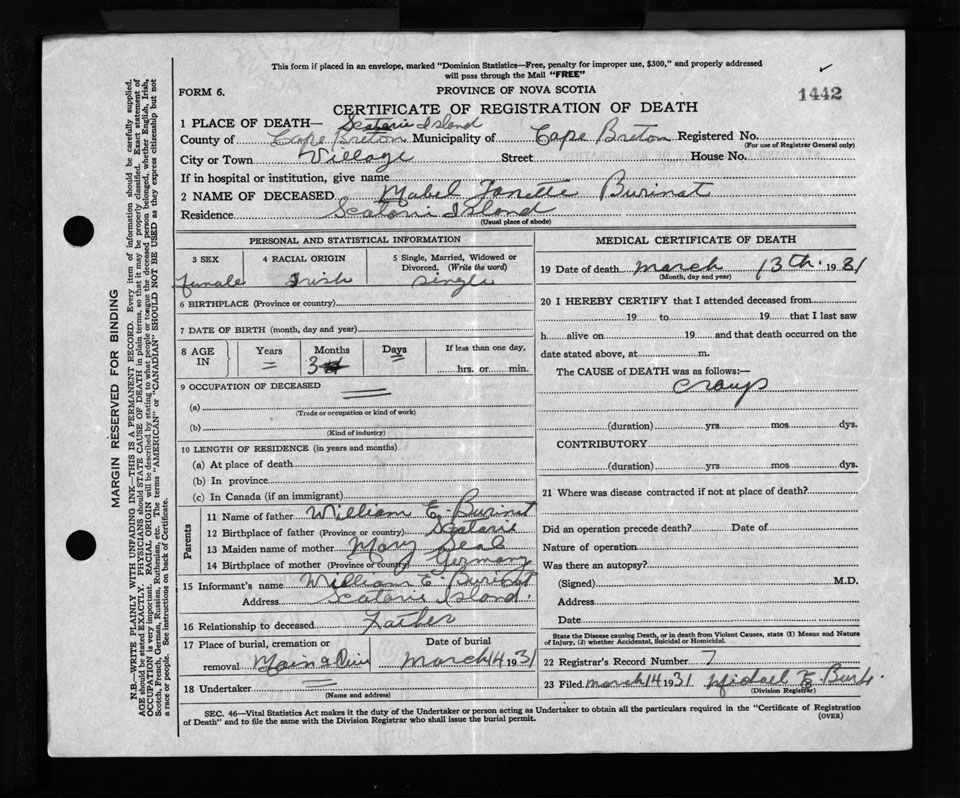 This form if placed in an envelope, marked "Dominion Statistics—Free, penalty for improper use, $300," and properly addressed
will pass through the Mail "FREE"
FORM 6.
PROVINCE OF NOVA SCOTIA
1442
CERTIFICATE OF REGISTRATION OF DEATH
1 PLACE OF DEATH— Scatarie Island
County of Cape Breton Municipality of Cape Breton Registered No.
(For use of Registrar General only)
City or Town Village Street House No.
If in hospital or institution, give name
2 NAME OF DECEASED Mabel Burinat
Residence Scatarie Island
(Usual place of abode)
PERSONAL AND STATISTICAL INFORMATION
3 SEX 4 RACIAL ORIGIN 5 Single, Married, Widowed or
Divorced. (Write the word)
female Irish single
6 BIRTHPLACE (Province or country)
7 DATE OF BIRTH (month, day and year)
8 AGE IN Years Months Days If less than one day,
= 3 = hrs. or min.
9 OCCUPATION OF DECEASED
(a)
(Trade or occupation or kind of work)
(b)
(Kind of industry)
10 LENGTH OF RESIDENCE (in years and months)
(a) At place of death
(b) In province
(c) In Canada (if an immigrant)
Parents
11 Name of father William E. Burinat
12 Birthplace of father (Province or country) Scatarie
13 Maiden name of mother Mary Seal
14 Birthplace of mother (Province or country) Germany
15 Informant's name William E. Burinat
Address Scatarie Island.
16 Relationship to deceased Father
17 Place of burial, cremation or Date of burial
removal Main a Dieu March 14 1931
18 Undertaker =
(Name and address)
MEDICAL CERTIFICATE OF DEATH
19 Date of death March 13th. 1931
(Month, day and year)
20 I HEREBY CERTIFY that I attended deceased from
19 to 19 that I last saw
h alive on 19 and that death occurred on the
date stated above, at m.
The CAUSE of DEATH was as follows:—
Croup
(duration) yrs mos dys.
CONTRIBUTORY
(duration) yrs mos dys.
21 Where was disease contracted if not at place of death?
Did an operation precede death? Date of
Nature of operation
Was there an autopsy?
(Signed) M.D.
Address
Date
State the Disease causing Death, or in death from Violent Causes, state (1) Means and Nature
of Injury, (2) whether Accidental, Suicidal or Homicidal.
22 Registrar's Record Number 7
23 Filed March 14 1931 Michael E. Burke
(Division Registrar)
SEC. 46—Vital Statistics Act makes it the duty of the Undertaker or person acting as Undertaker to obtain all the particulars required in the "Certificate of Registration
of Death" and to file the same with the Division Registrar who shall issue the burial permit.
(OVER)
MARGIN RESERVED FOR BINDING
N.B.—WRITE PLAINLY WITH UNFADING INK—THIS IS A PERMANENT RECORD. Every item of information should be carefully supplied.
AGE should be stated EXACTLY. PHYSICIANS should STATE CAUSE OF DEATH in plain terms, so that it may be properly classified. Exact statement of
OCCUPATION is very important. RACIAL ORIGIN will be described by stating to what people or tongue the deceased person belonged, whether English, Irish,
Scotch, French, German, Russian, Ruthenian, etc. The terms "AMERICAN" or "CANADIAN" SHOULD NOT BE USED as they express citizenship but not
a race or people. See instructions on back of Certificate.